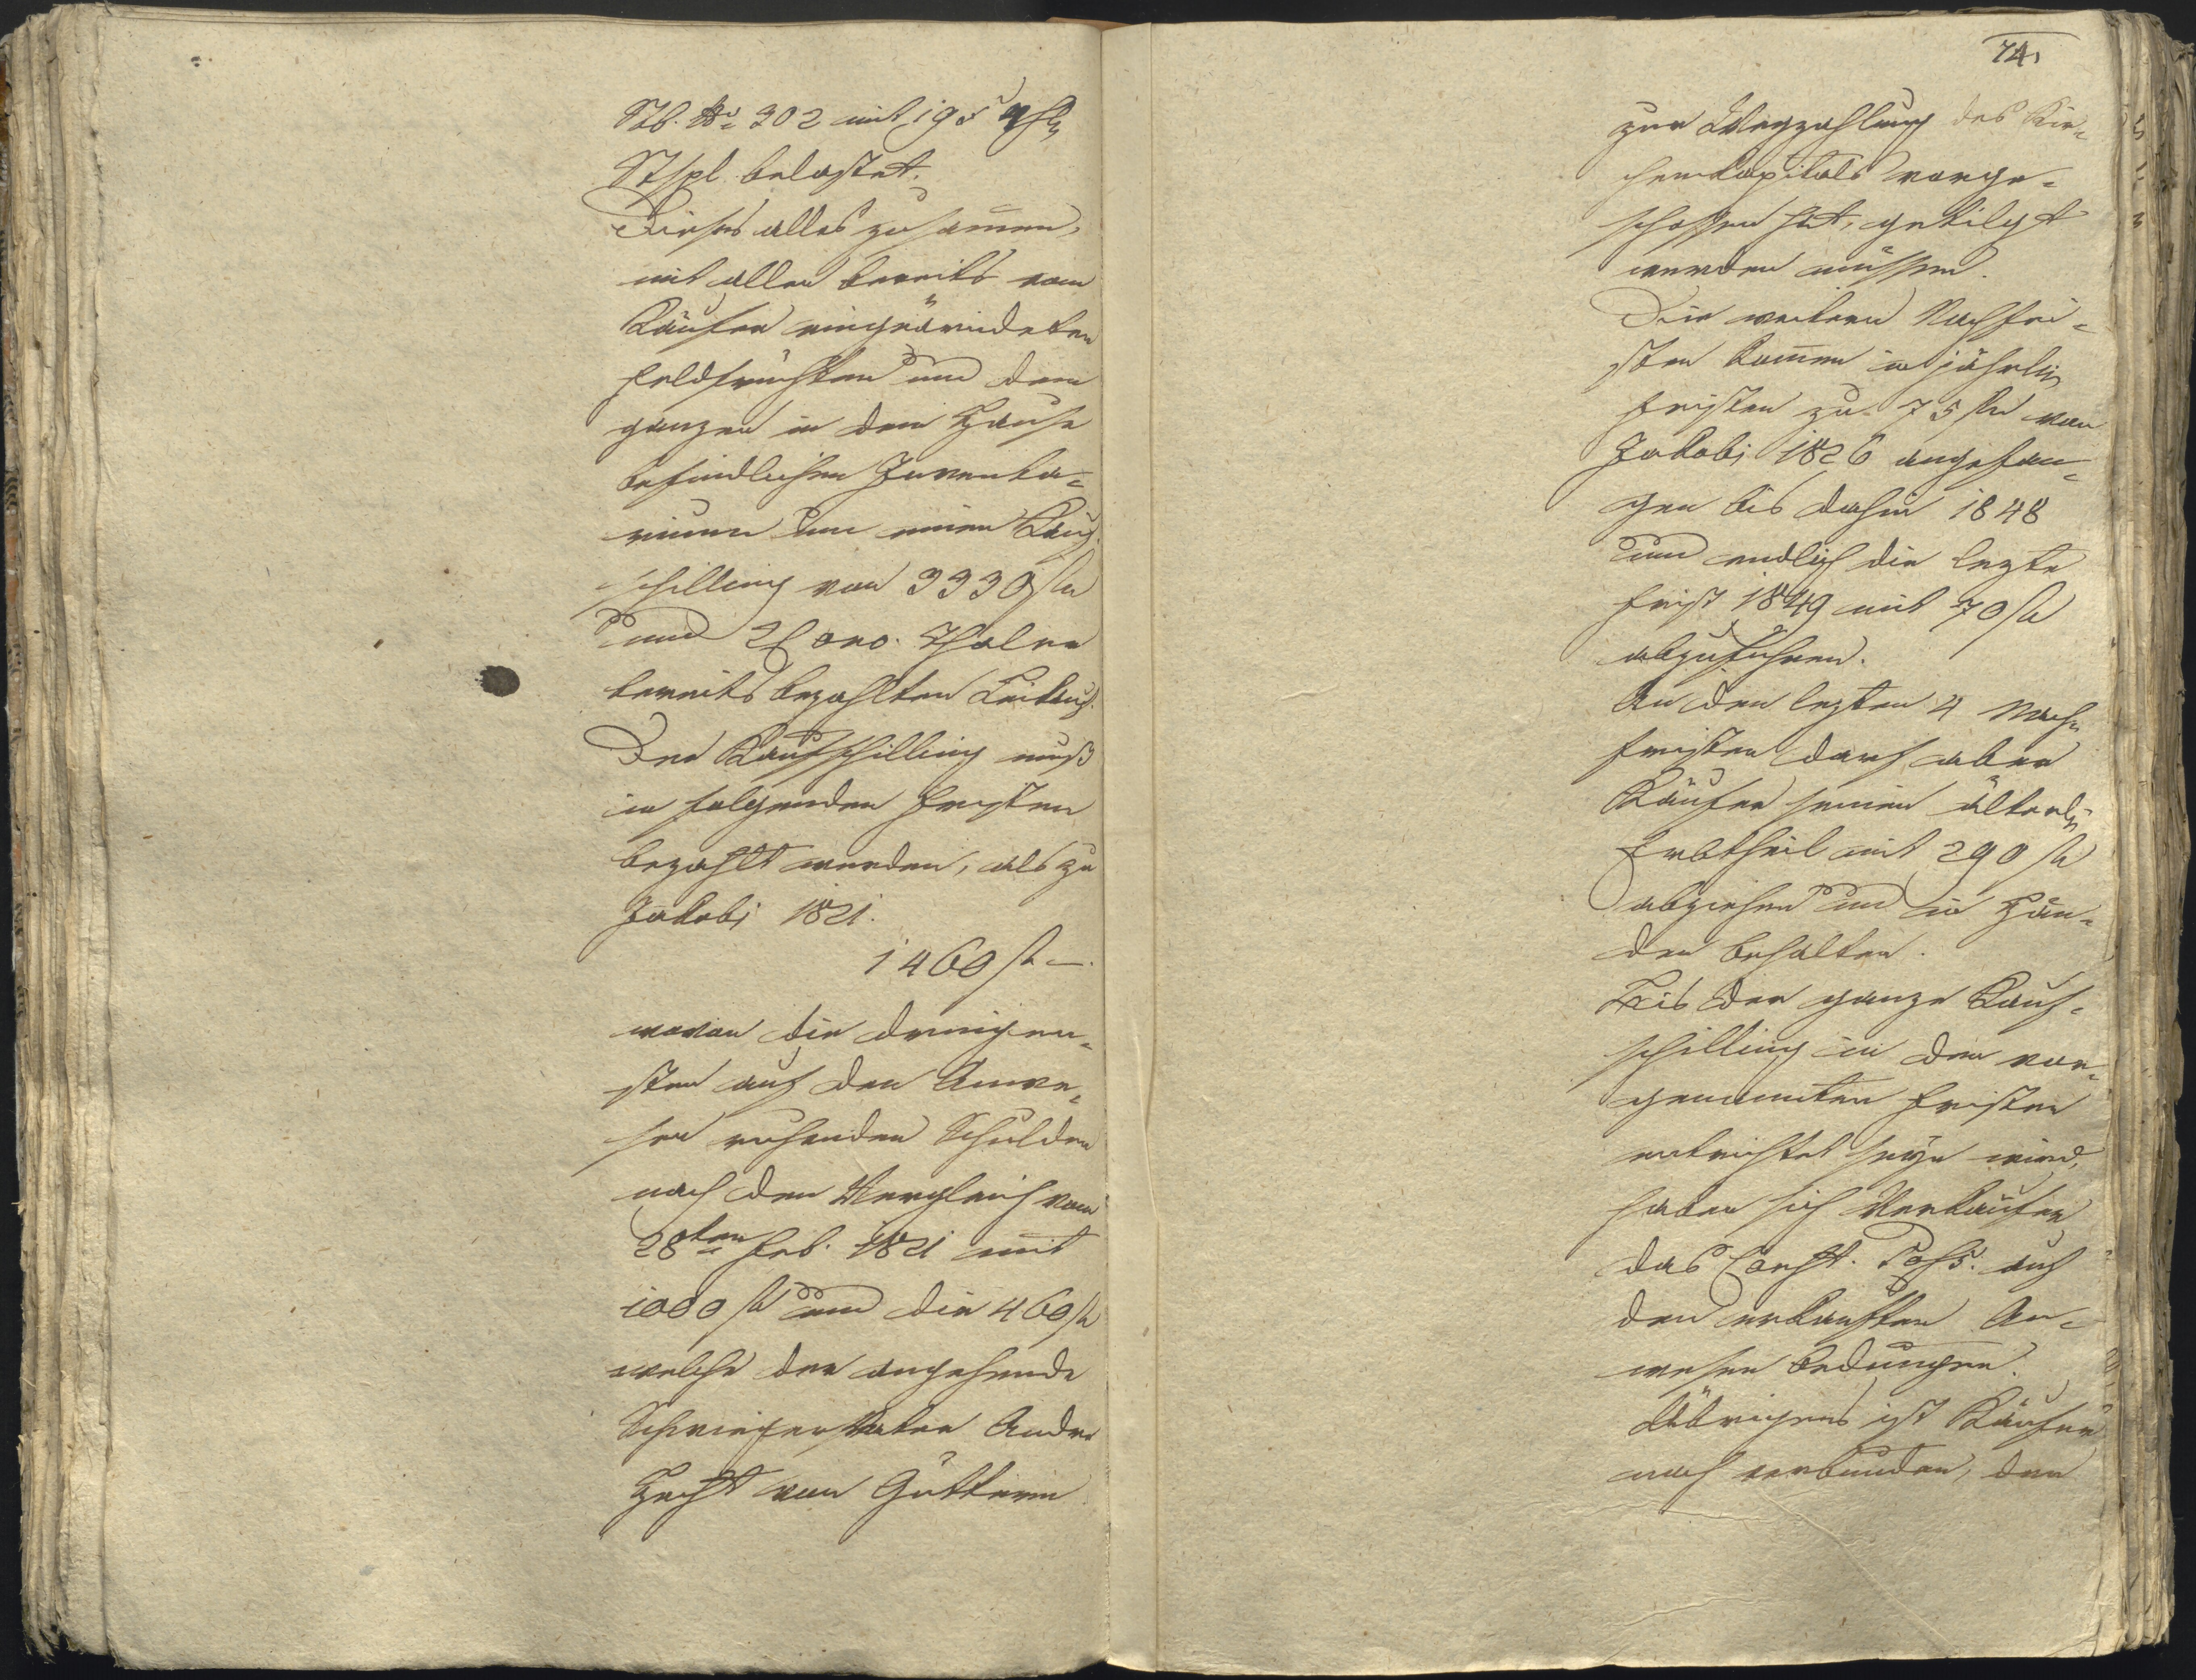 Stb. No 302 mit 195
Stspl. belastet.
Dieses alles zusam̄en,
mit allen bereits vom
Käufer eingeärndeten
Feldfrüchten und dem
ganzen in dem Hause
befindlichen Inventa-
rium um einen Kauf-
schilling von 3330 fl
und 2 Thaler
bereits bezahlten Leikauf.
Der Kaufschilling muß
in folgenden Fristen
bezahlt werden, als zu
Jakobi 1821.
1460 fl —.
wovon die dringen-
sten auf den Anwe-
sen ruhenden Schulden
nach dem Vergleich vom
28ten Feb. 1821 mit
1000 fl und die 460 fl
welche der angehende
Schwiegervater Andre
Hecht von
74.
zur Wegzahlung des Kir-
chenkapitals vorge-
schossen hat, getilgt
werden müssen.
Die weitern Nachfri-
sten kom̄en in jährlich
Fristen zu 75 fl von
Jakobi 1826 angefan-
gen bis dahin 1848
und endlich die lezte
Frist 1849 mit 70 fl
abzuführen.
An den lezten 4 Nach-
fristen darf aber
Käufer seinen älterl.
Erbtheil mit 290 fl
abziehen und in Hän-
den behalten.
Bis der ganze Kauf-
schilling in den vor-
genannten Fristen
entrichtet seyn wird,
haben sich Verkäufer
das Const. Poss. auf
den verkauften An-
wesen bedungen.
Uibrigens ist Käufer
noch verbunden, den